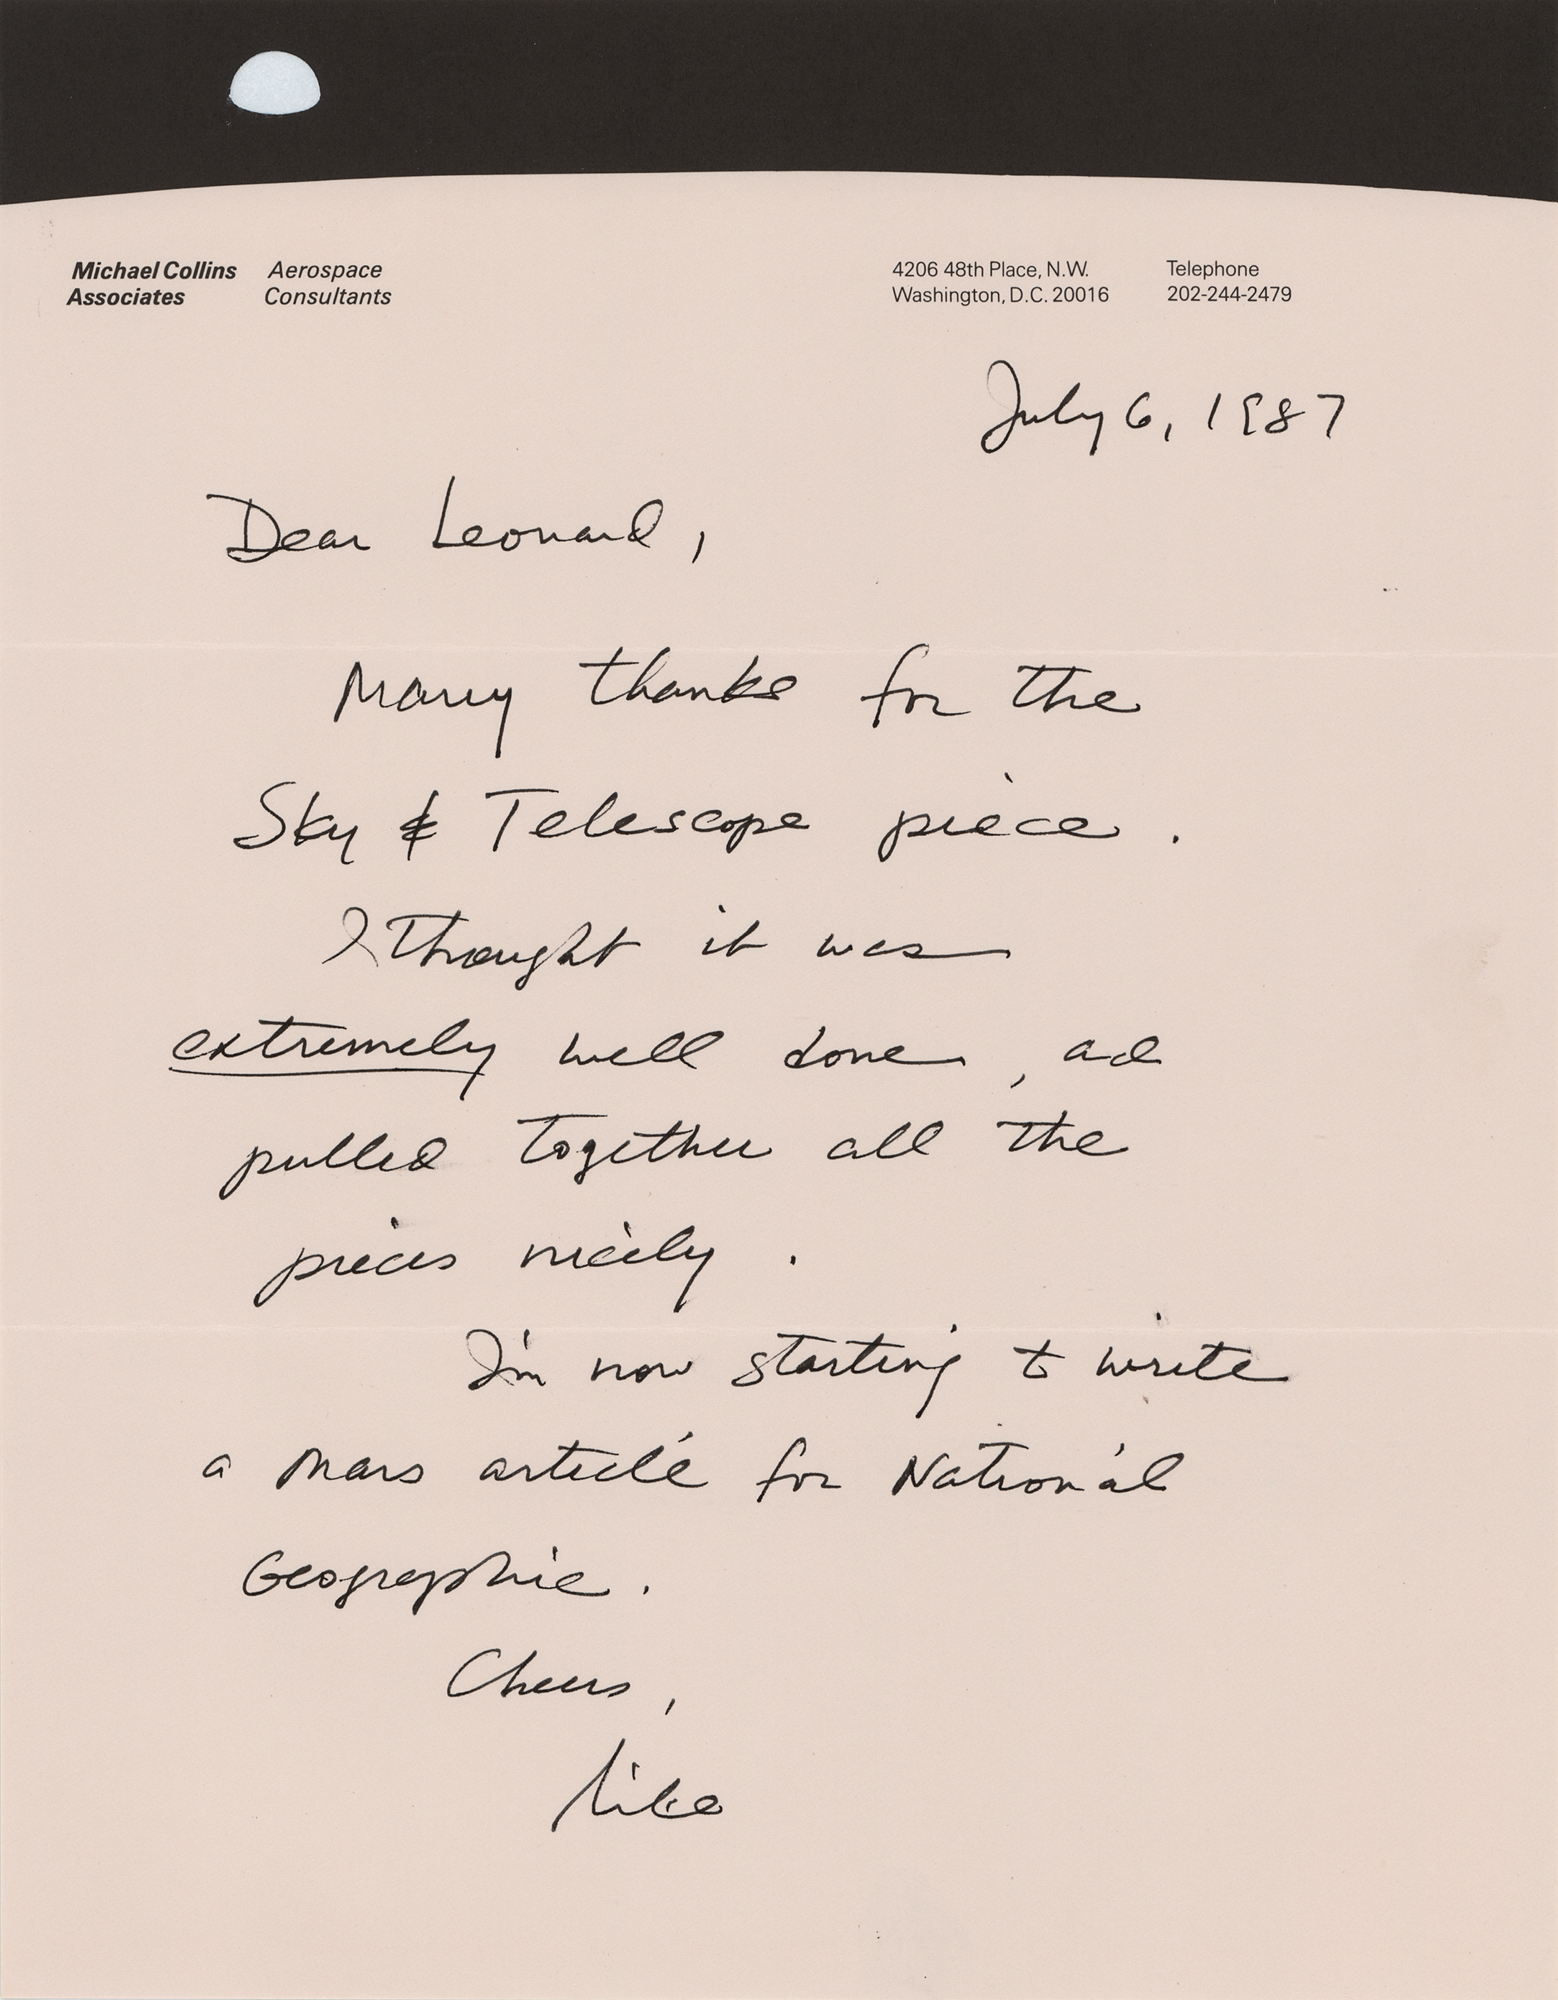 Michael Collins Aerospace
Associates Consultants
4206 48th Place, N.W. Telephone
Washington, D.C. 20016 202-244-2479
July 6, 1987
Dear Leonard,
Many thanks for the
Sky & Telescope piece.
I thought it was
extremely well done, ad
pulled together all the
pieces nicely.
I'm now starting to write
a Mars article for National
Geographic.
Cheers,
Mike